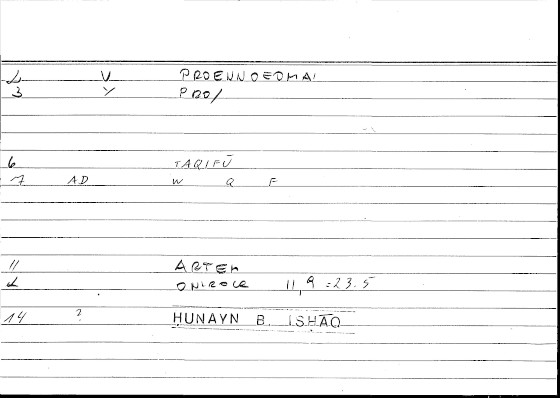 2 V PROENNOEOMAI
3 Y PRO/
6 TAQIFŪ
7 AD W Q F
11 ARTEM
2 ONIROCR 11,9 = 23.5
14 ? ḤUNAYN B. ISḤĀQ